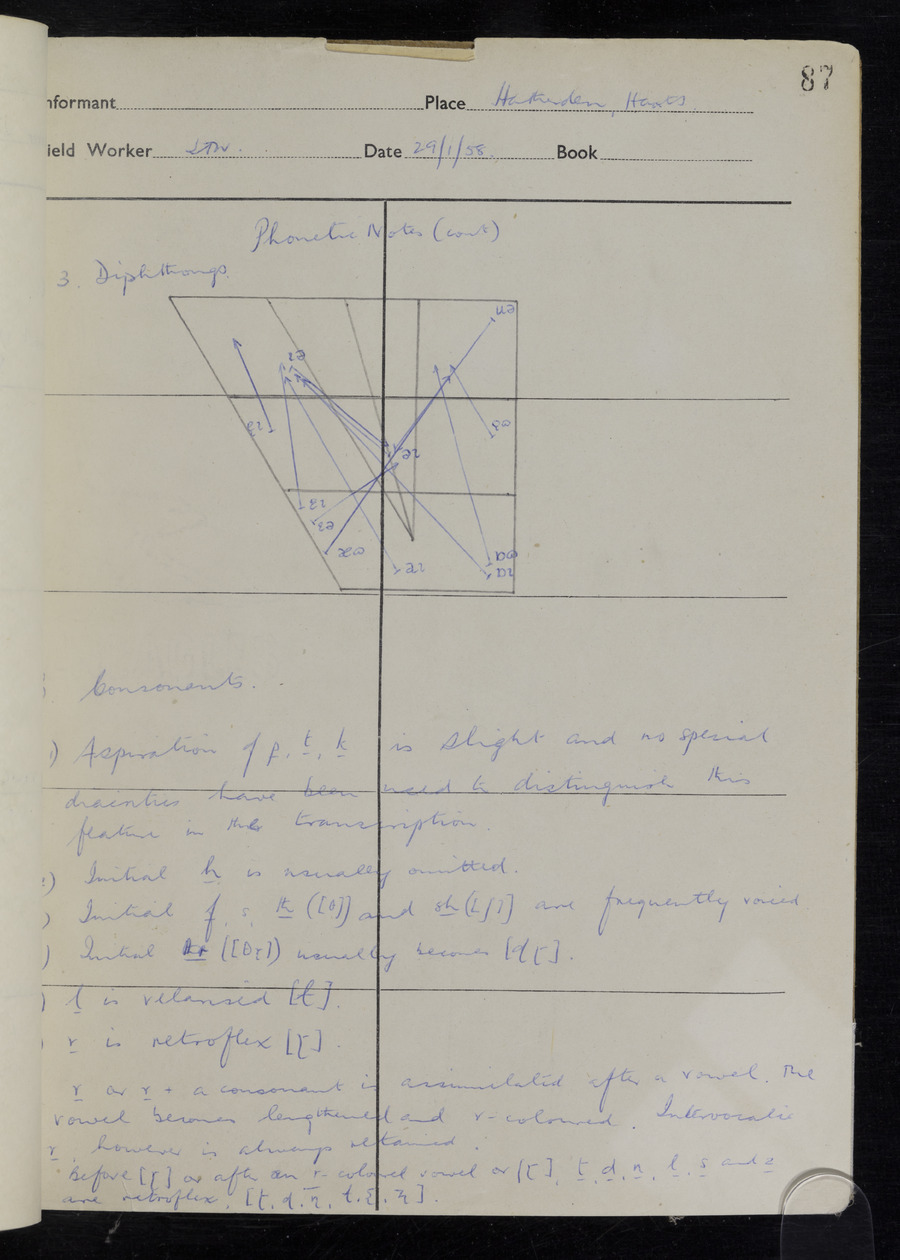 87
nformant Place Hatherden, Hants
ield Worker Date 29/1/58. Book
Phonetic Notes (cont)
3. Diphthongs.
Consonants.
) Aspiration of p, t, k is slight and no special
diacritics have been used to distinguish this
feature in the transcription.
) Initial h is usually omitted.
) Initial f, s, th ([θ]) and sh ([ʃ]) are frequently voiced
) Initial thr ([θɽ]) usually becomes [dɽ].
) l is velarised [ɫ].
) r is retroflex [ɽ].
r or r + a consonant is assimilated after a vowel. The
vowel becomes lengthened and r-coloured. Intervocalic
r, however is always retained.
Before [ɽ] or after an r-coloured vowel or [ɽ], t, d, n, l, s and z
are retroflex, [ʈ, ɖ, ɳ, ɭ, ʂ, ʐ].